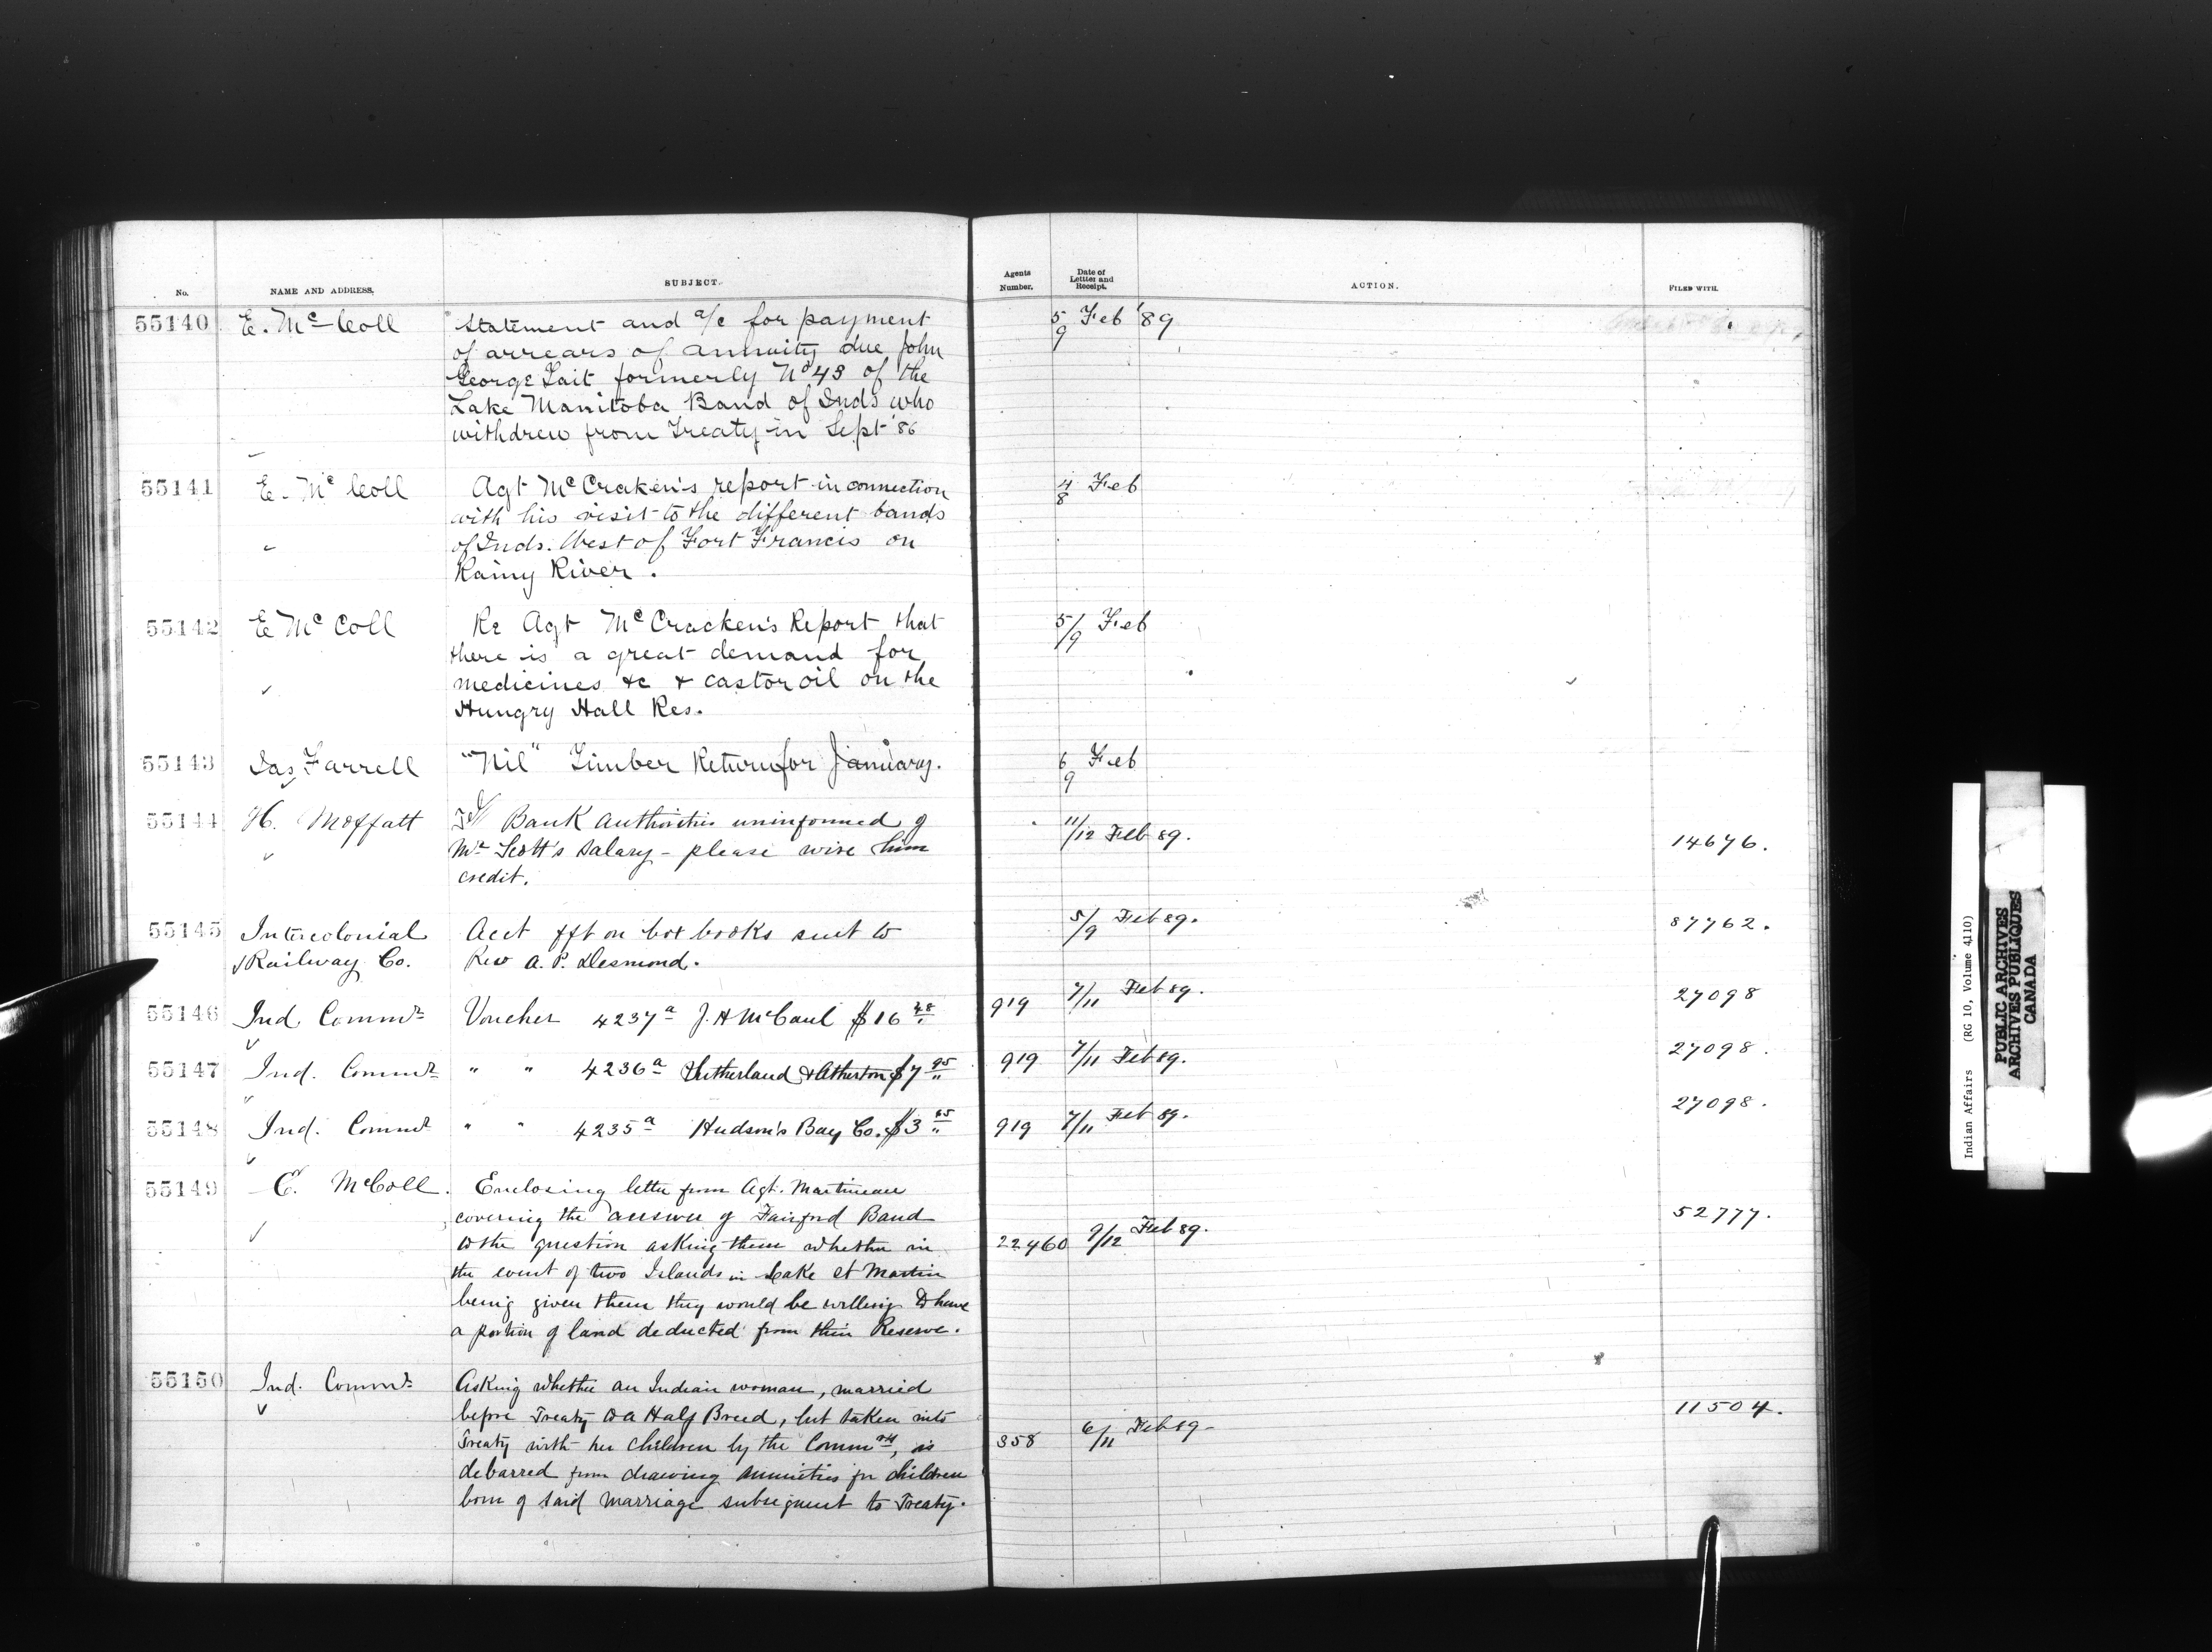 No. NAME AND ADDRESS. SUBJECT. Agents Number. Date of Letter and Receipt. ACTION. FILED WITH.
55140 E. McColl Statement and a/c for payment 5/9 Feb '89
of arrears of annuity due John
George Lait formerly No 43 of the
Lake Manitoba Band of Inds who
withdrew from Treaty in Sept '86
55141 E. McColl Agt McCraken's report in connection 4/8 Feb
with his visit to the different bands
of Inds. West of Fort Francis on
Rainy River.
55142 E McColl Re Agt McCracken's Report that 5/9 Feb
there is a great demand for
medicines &c & castor oil on the
Hungry Hall Res.
55143 Jas Farrell "Nil" Timber Return for January. 6/9 Feb
55144 H. Moffatt Bank Authorities uninformed of 11/12 Feb 89. 14676.
Mr Scott's salary - please wire him
credit.
55145 Intercolonial Acct fft on box books sent to 5/9 Feb 89. 87762.
Railway Co. Rev A. P. Desmond.
55146 Ind Commr Voucher 4237a J. H McCaul $16 48 919 7/11 Feb 89. 27098
55147 Ind. Commr " " 4236a Sutherland & Atherton $7 95 919 7/11 Feb 89. 27098.
55148 Ind. Commr " " 4235a Hudson's Bay Co. $3 65 919 7/11 Feb 89. 27098.
55149 E. McColl. Enclosing letter from Agt. Martineau
covering the answer of Fairford Band 52777.
to the question asking them whether in 22460 9/12 Feb 89.
the event of two Islands in Lake St Martin
being given them they would be willing to have
a portion of land deducted from their Reserve.
55150 Ind. Commr Asking whether an Indian woman, married
before Treaty to a Half Breed, but taken into 11504.
Treaty with her children by the Commrs, is 358 6/11 Feb 89
debarred from drawing annuities for children
born of said marriage subsequent to Treaty.
Indian Affairs (RG 10, Volume 4110)
PUBLIC ARCHIVES
ARCHIVES PUBLIQUES
CANADA